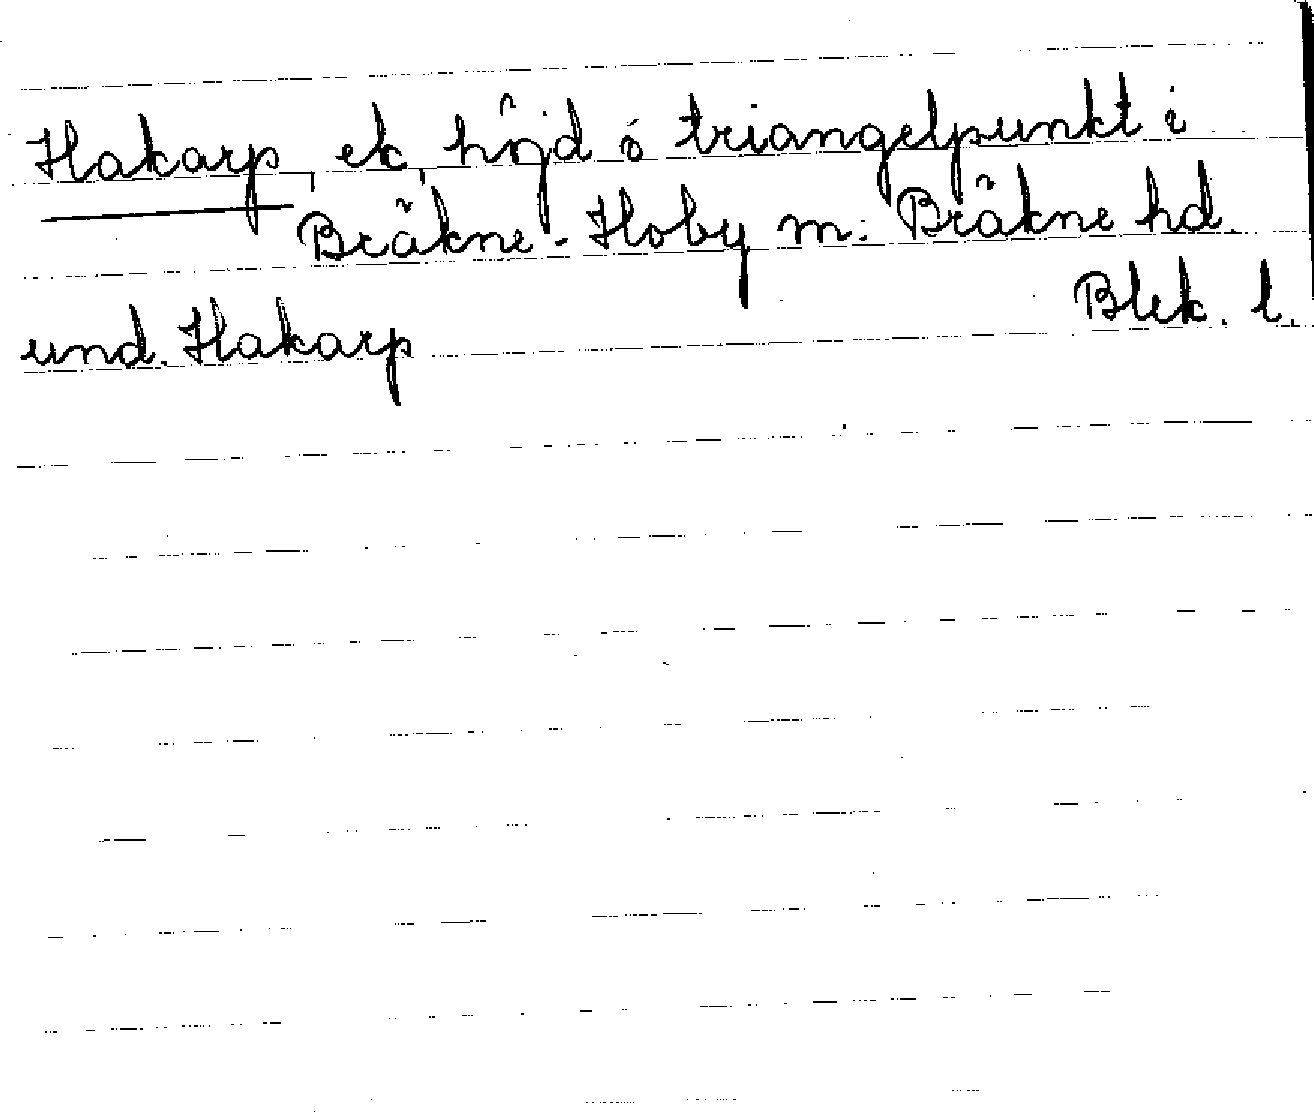 Hakarp, ek, höjd ó triangelpunkt i
Bräkne-Hoby m: Bräkne hd.
Blek. l.
und. Hakarp